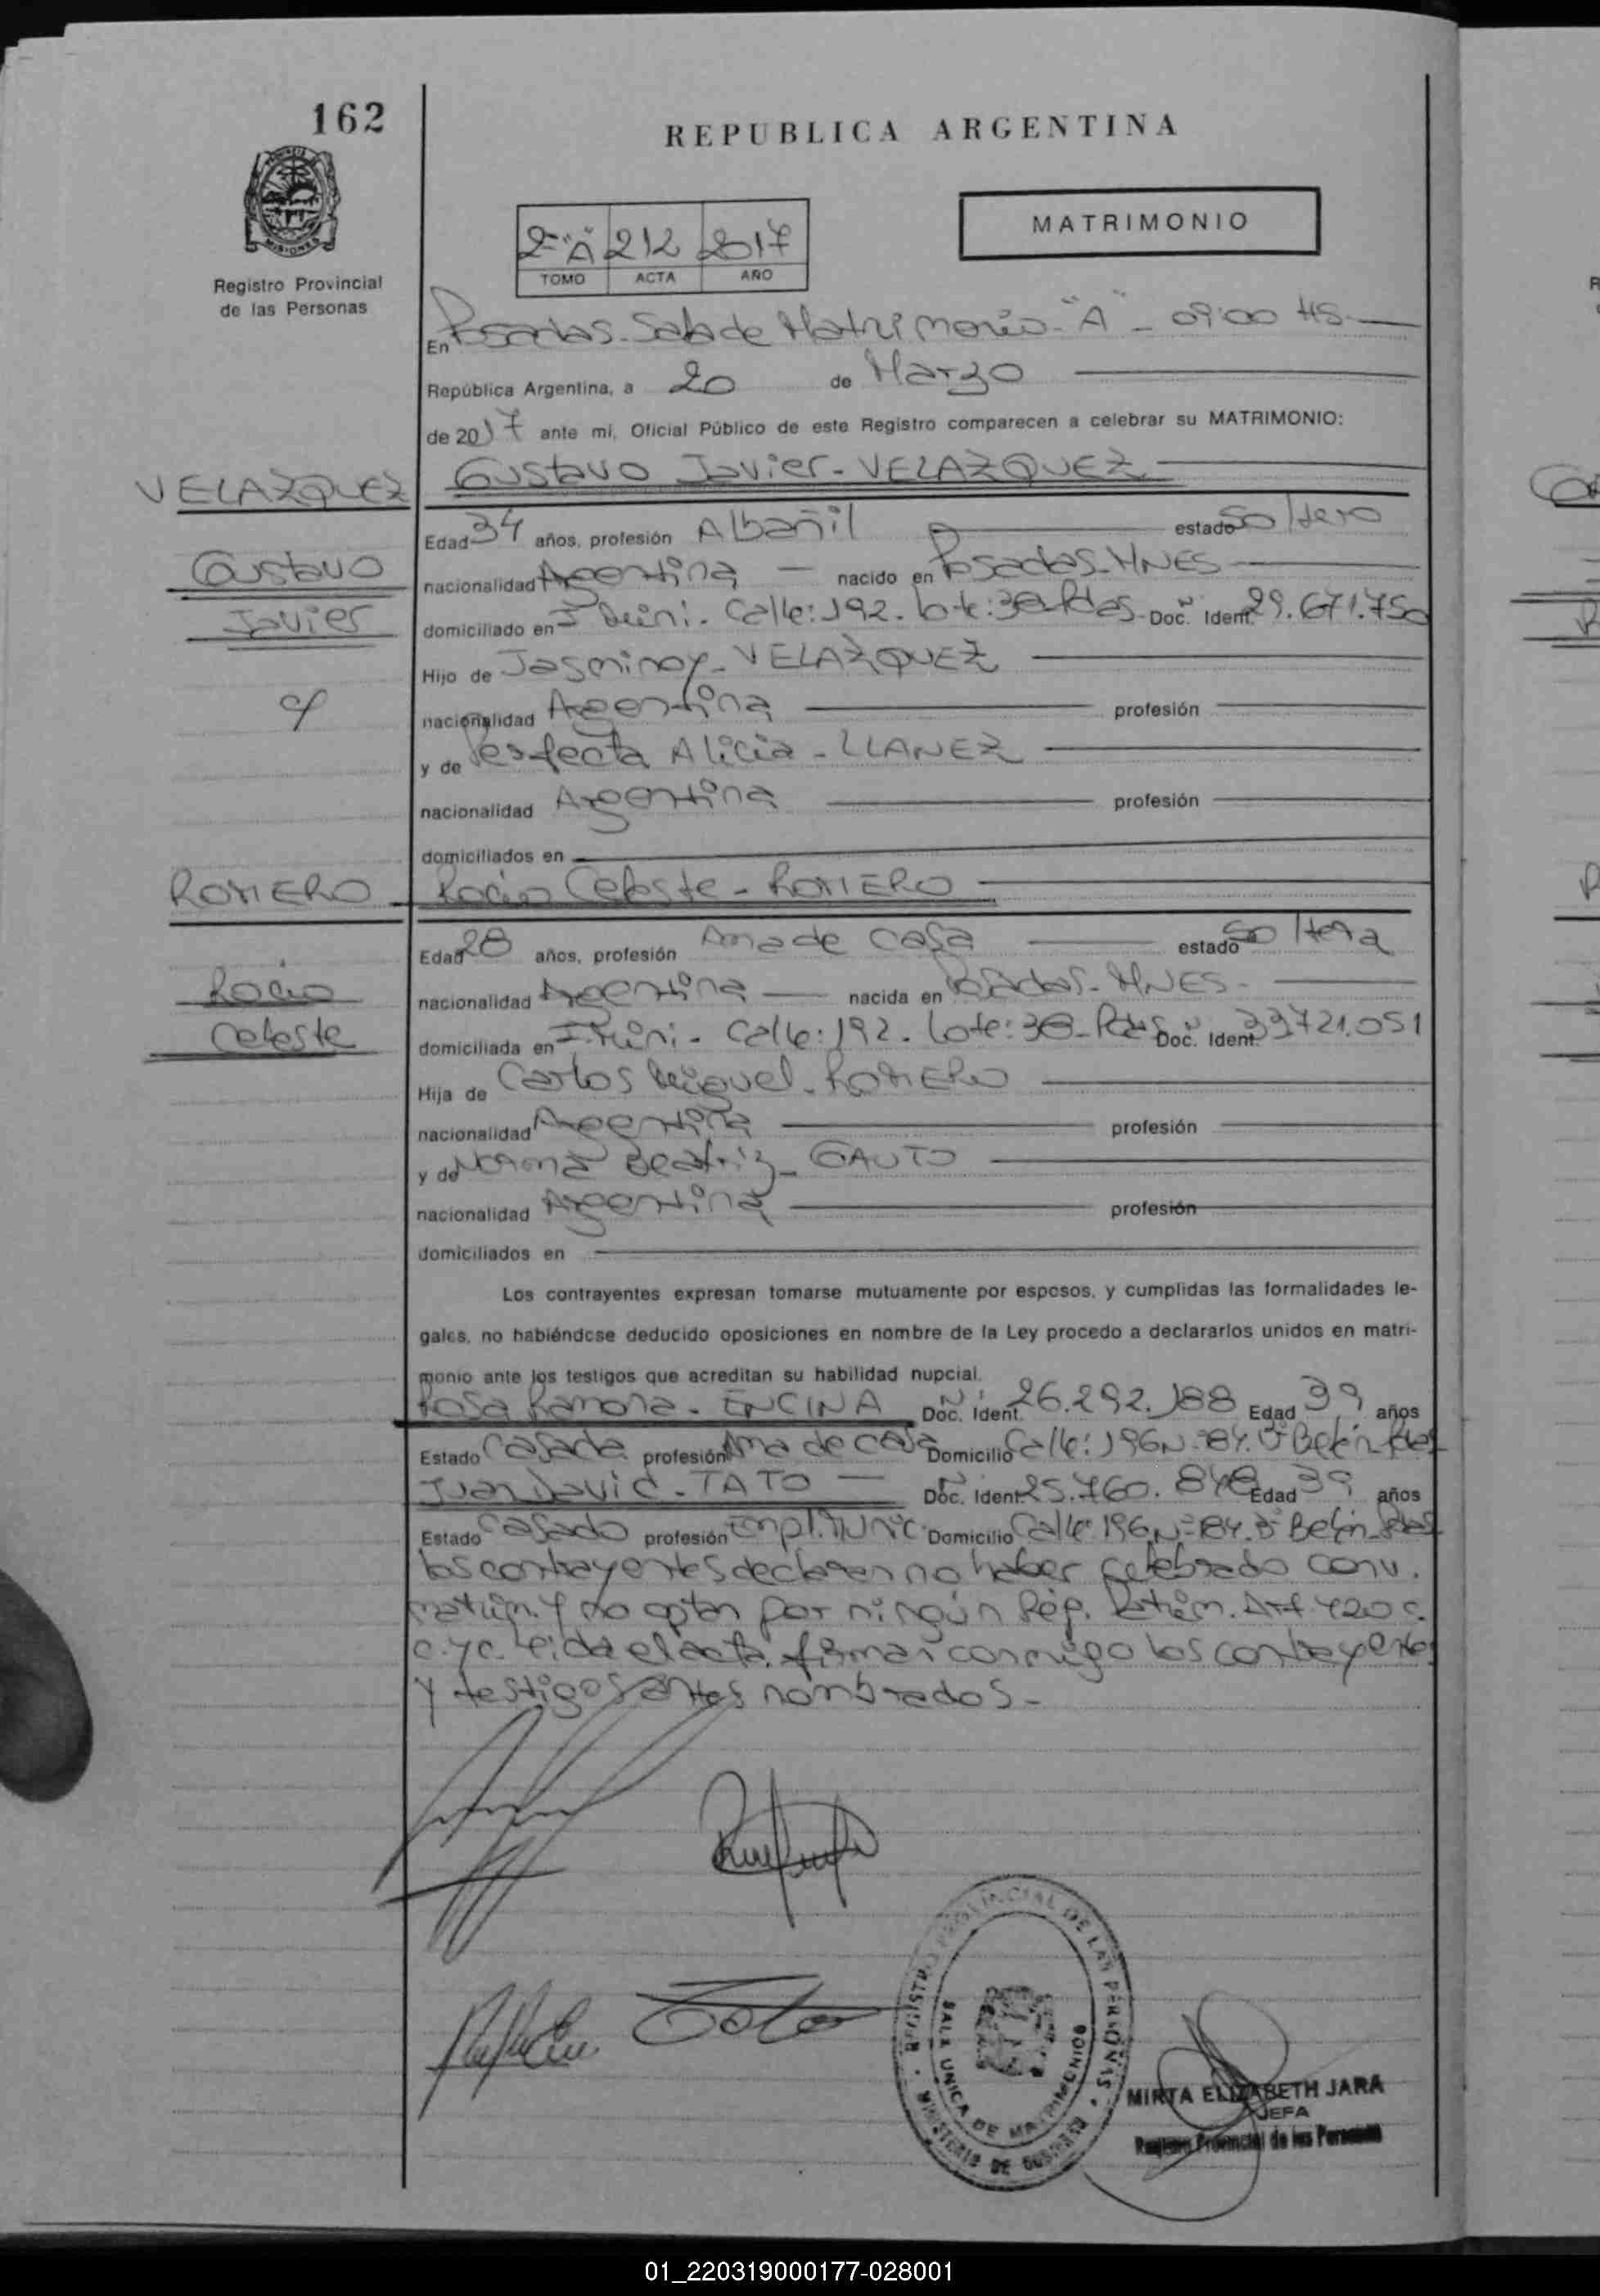 162
REPUBLICA ARGENTINA
MISIONES
Registro Provincial
de las Personas
2º "A" 212 2017
TOMO ACTA AÑO
MATRIMONIO
En Posadas - Sala de Matrimonio - "A" - 09:00 HS.
República Argentina, a 20 de Marzo
de 2017 ante mi, Oficial Público de este Registro comparecen a celebrar su MATRIMONIO:
VELAZQUEZ
Gustavo
Javier
c/
Gustavo Javier - VELAZQUEZ
Edad 34 años, profesión Albañil estado Soltero
nacionalidad Argentina nacido en Posadas - MNES
domiciliado en Calle: 192. Lote: Pdas - Doc. Ident. 29.671.750
Hijo de VELAZQUEZ
nacionalidad Argentina profesión
y de Perfecta Alicia - LLANEZ
nacionalidad Argentina profesión
domiciliados en
ROMERO
Rocio
Celeste
Rocio Celeste - ROMERO
Edad 28 años, profesión Ama de casa estado Soltera
nacionalidad Argentina nacida en Posadas - MNES -
domiciliada en Calle: 192. Lote: Pdas Doc. Ident. 33.721.051
Hija de Carlos Miguel - ROMERO
nacionalidad Argentina profesión
y de Norma Beatriz - GAUTO
nacionalidad Argentina profesión
domiciliados en
Los contrayentes expresan tomarse mutuamente por esposos, y cumplidas las formalidades le-
gales, no habiéndose deducido oposiciones en nombre de la Ley procedo a declararlos unidos en matri-
monio ante los testigos que acreditan su habilidad nupcial.
Rosa Ramona - ENCINA Doc. Ident. 26.292.188 Edad 39 años
Estado Casada profesión Ama de casa Domicilio Calle: 196 Nº 84. Bº Belén - Pdas
Juan David - TATO Doc. Ident. 25.760.848 Edad 39 años
Estado Casado profesión Empl. Munic. Domicilio Calle: 196 Nº 84. Bº Belén - Pdas
los contrayentes declaran no haber celebrado conv.
matrim. y no optan por ningún Rég. Patrim. Art. 420 c.
c. y c. Leida el acta, firman conmigo los contrayentes
y testigos antes nombrados -
REGISTRO PROVINCIAL DE LAS PERSONAS
MINISTERIO DE GOBIERNO
SALA UNICA DE MATRIMONIOS
MIRTA ELIZABETH JARA
JEFA
Registro Provincial de las Personas
01_220319000177-028001